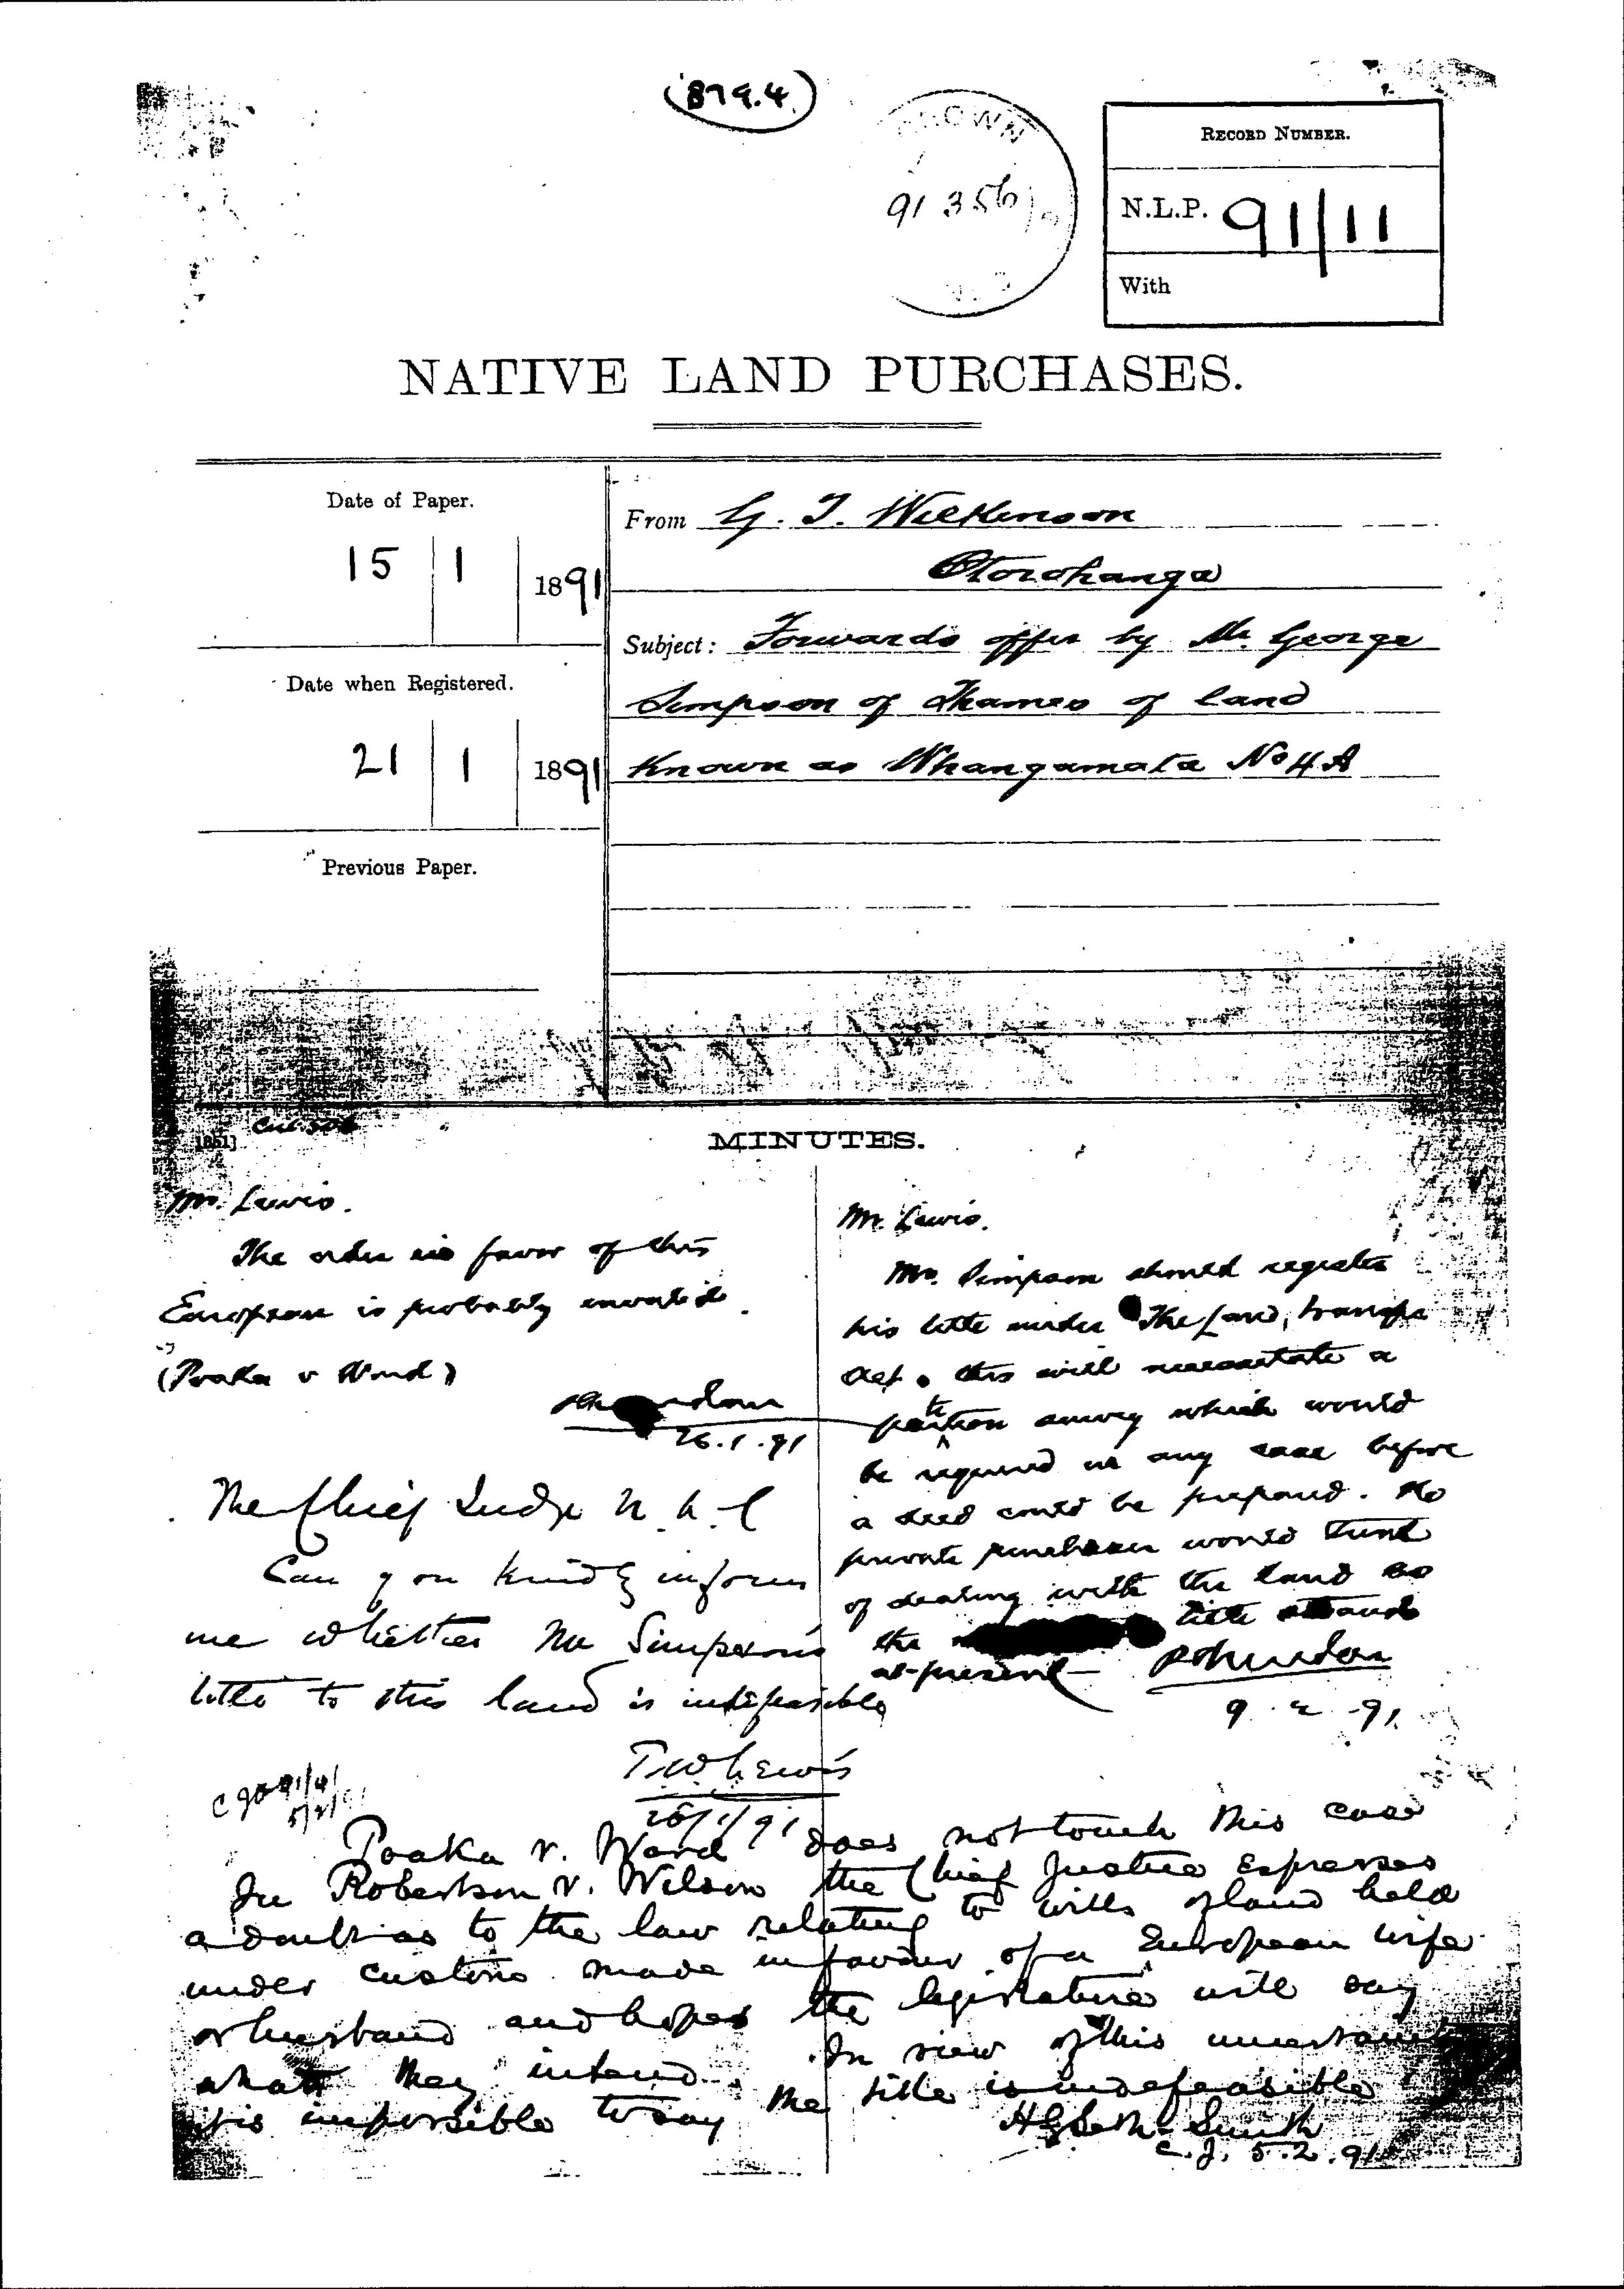 (879.4)
CROWN
91 356
RECORD NUMBER.
N.L.P. 91/11
With
NATIVE LAND PURCHASES.
Date of Paper.
15 | 1 | 1891
Date when Registered.
21 | 1 | 1891
Previous Paper.
From G. T. Wilkinson
Otorohanga
Subject: Forwards offer by Mr. George
Simpson of Thames of land
Known as Whangamata No 4 A
MINUTES.
Mr. Lewis.
The order in favor of this
European is probably invalid.
(Poaka v Ward)
26.1.91
The Chief Judge N. L. C
Can you kindly inform
me whether Mr Simpson's
title to this land is indefeasible
T W Lewis
26/1/91
Mr Lewis.
Mr. Simpson should register
his title under The Land Transfer
Act. this will necessitate a
partition survey which would
be required in any case before
a deed could be prepared. No
private purchaser would think
of dealing with the land as
the title stands
at present
9.2.91
Poaka v. Ward does not touch this case
In Robertson v. Wilson the Chief Justice expresses
a doubt as to the law relating to wills of land held
under custom made in favour of a European wife
or husband and hopes the legislature will say
what they intend. In view of this uncertainty
it is impossible to say the title is indefeasible
H G Seth-Smith
C.J. 5.2.91